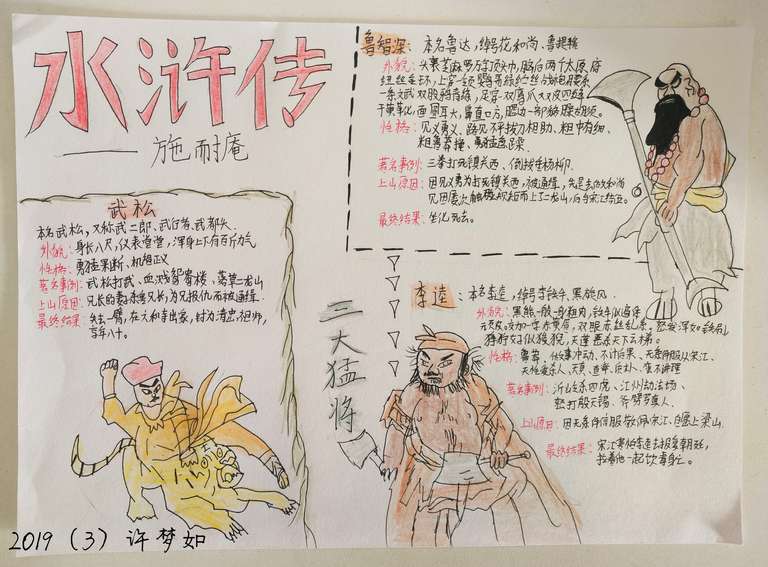 水浒传
——施耐庵
鲁智深：本名鲁达，绰号花和尚、鲁提辖
外貌：头裹芝麻罗万字顶头巾，脑后两个太原府
纽丝金环，上穿一领鹦哥绿纻丝战袍，腰系
一条文武双股鸦青绦，足穿一双鹰爪皮四缝
干黄靴，面圆耳大，鼻直口方，腮边一部
性格：见义勇义、路见不平拔刀相助、粗中有细、
粗鲁莽撞、
著名事例：三拳打死镇关西、倒拔垂杨柳
上山原因：因见义勇为打死镇关西，被通缉，先是去做和尚
上二龙山，后与宋江
最终结果：坐化死去。
武松
本名武松，又称武二郎、武行者、武都头
外貌：身长八尺，仪表堂堂，浑身上下有百斤力气
性格：勇猛果断、机智正义
著名事例：武松打武、血溅鸳鸯楼、落草二龙山
上山原因：兄长的妻杀害兄长，为兄报仇而被通缉
最终结果：失去一臂，在六和寺出家，封为清忠祖师，
享年八十。
三大猛将
李逵：本名李逵，绰号李铁牛、黑旋风
外貌：黑熊一般一身粗肉，铁牛似遍体
顽皮，交加一字赤黄眉，双眼赤丝乱系。怒发浑如铁刷，
狰狞好似狻猊，天蓬恶杀下云梯。
性格：鲁莽、做事冲动、不计后果、无条件服从宋江、
天性爱杀人、天真、直率、质朴、蛮不讲理
著名事例：沂山杀四虎、江州劫法场、
怒打殷天锡、斧劈罗真人
上山原因：因无条件信服敬佩宋江，自愿上梁山
最终结果：宋江害怕李逵去报复朝廷，
拉着他一起饮毒身亡。
2019（3）许梦如